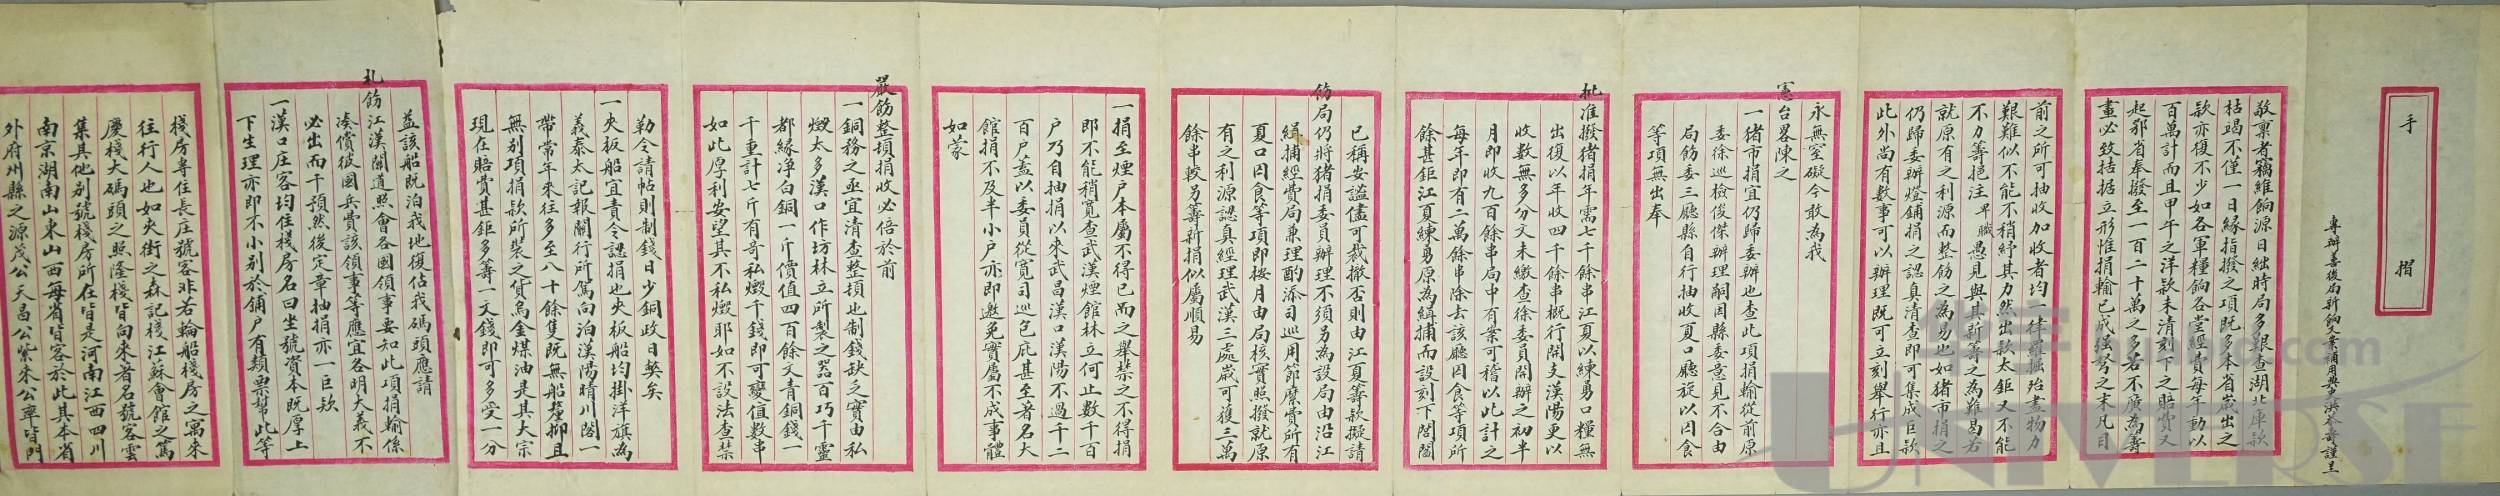 手摺
專辦善後局新餉文案補用典史洪本壽謹呈
敬稟者竊維餉源日絀時局多艱查湖北庫款
枯竭不僅一日緣指撥之項既多本省歲出之
款亦復不少如各軍糧餉各堂經費每年動以
百萬計而且甲午之洋款未清刻下之賠貲又
起鄂省奉撥至一百二十萬之多若不廣為籌
畫必致拮据立形惟捐輸已成强弩之末凡目
前之所可抽收加收者均一律羅掘殆盡物力
艱難似不能不稍紓其力然出款太鉅又不能
不力籌挹注卑職愚見與其新籌之為難曷若
就原有之利源而整飭之為易也如猪市捐之
仍歸委辦燈鋪捐之認真清查即可集成巨款
此外尚有數事可以辦理既可立刻舉行亦且
永無窒礙今敢為我
憲台畧陳之
一猪市捐宜仍歸委辦也查此項捐輸從前原
委徐巡檢俊傑辦理嗣因縣委意見不合由
局飭委三廳縣自行抽收夏口廳旋以囚食
等項無出奉
批准撥猪捐年需七千餘串江夏以練勇口糧無
出復以年收四千餘串概行開支漢陽更以
收數無多分文未繳查徐委員開辦之初半
月即收九百餘串局中有案可稽以此計之
每年即有二萬餘串除去該廳囚食等項所
餘甚鉅江夏練勇原為緝捕而設刻下閭閻
已稱安謐儘可裁撤否則由江夏籌款擬請
飭局仍將猪捐委員辦理不須另為設局由沿江
緝捕經費局兼理酌添司巡用節糜費所有
夏口囚食等項即按月由局核實照撥就原
有之利源認真經理武漢三處歲可獲三萬
餘串較另籌新捐似屬順易
一捐至煙户本屬不得已而之舉禁之不得捐
即不能稍寬查武漢煙館林立何止數千百
户乃自抽捐以來武昌漢口漢陽不過千二
百户蓋以委員從寬司巡包庇甚至著名大
館捐不及半小户亦即邀免實屬不成事體
如蒙
嚴飭整頓捐收必倍於前
一銅務之亟宜清查整頓也制錢缺之實由私
燬太多漢口作坊林立所製之器百巧千靈
都緣净白銅一斤價值四百餘文青銅錢一
千重計七斤有奇私燬千錢即可變值數串
如此厚利安望其不私燬耶如不設法查禁
勒令請帖則制錢日少銅政日獘矣
一夾板船宜責令認捐也夾板船均掛洋旗為
義泰太記報關行所駕向泊漢陽晴川閣一
帶常年來往多至八十餘隻既無船釐抑且
無别項捐款所裝之貨烏金煤油是其大宗
現在賠貲甚鉅多籌一文錢即可多受一分
益該船既泊我地復估我碼頭應請
札飭江漢關道照會各國領事要知此項捐輸係
湊償彼國兵費該領事等應宜各明大義不
必出而干預然後定章抽捐亦一巨款
一漢口庄客均住棧房名曰坐號資本既厚上
下生理亦即不小别於鋪户有類票幫此等
棧房專住長庄號客非若輪船棧房之寓來
往行人也如夾街之森記棧江蘇會館之篤
慶棧大碼頭之照隆棧皆向來著名號客雲
集其他别號棧房所在皆是河南江西四川
南京湖南山東山西每省皆客於此其本省
外府州縣之源茂公天昌公紫朱公車皆門